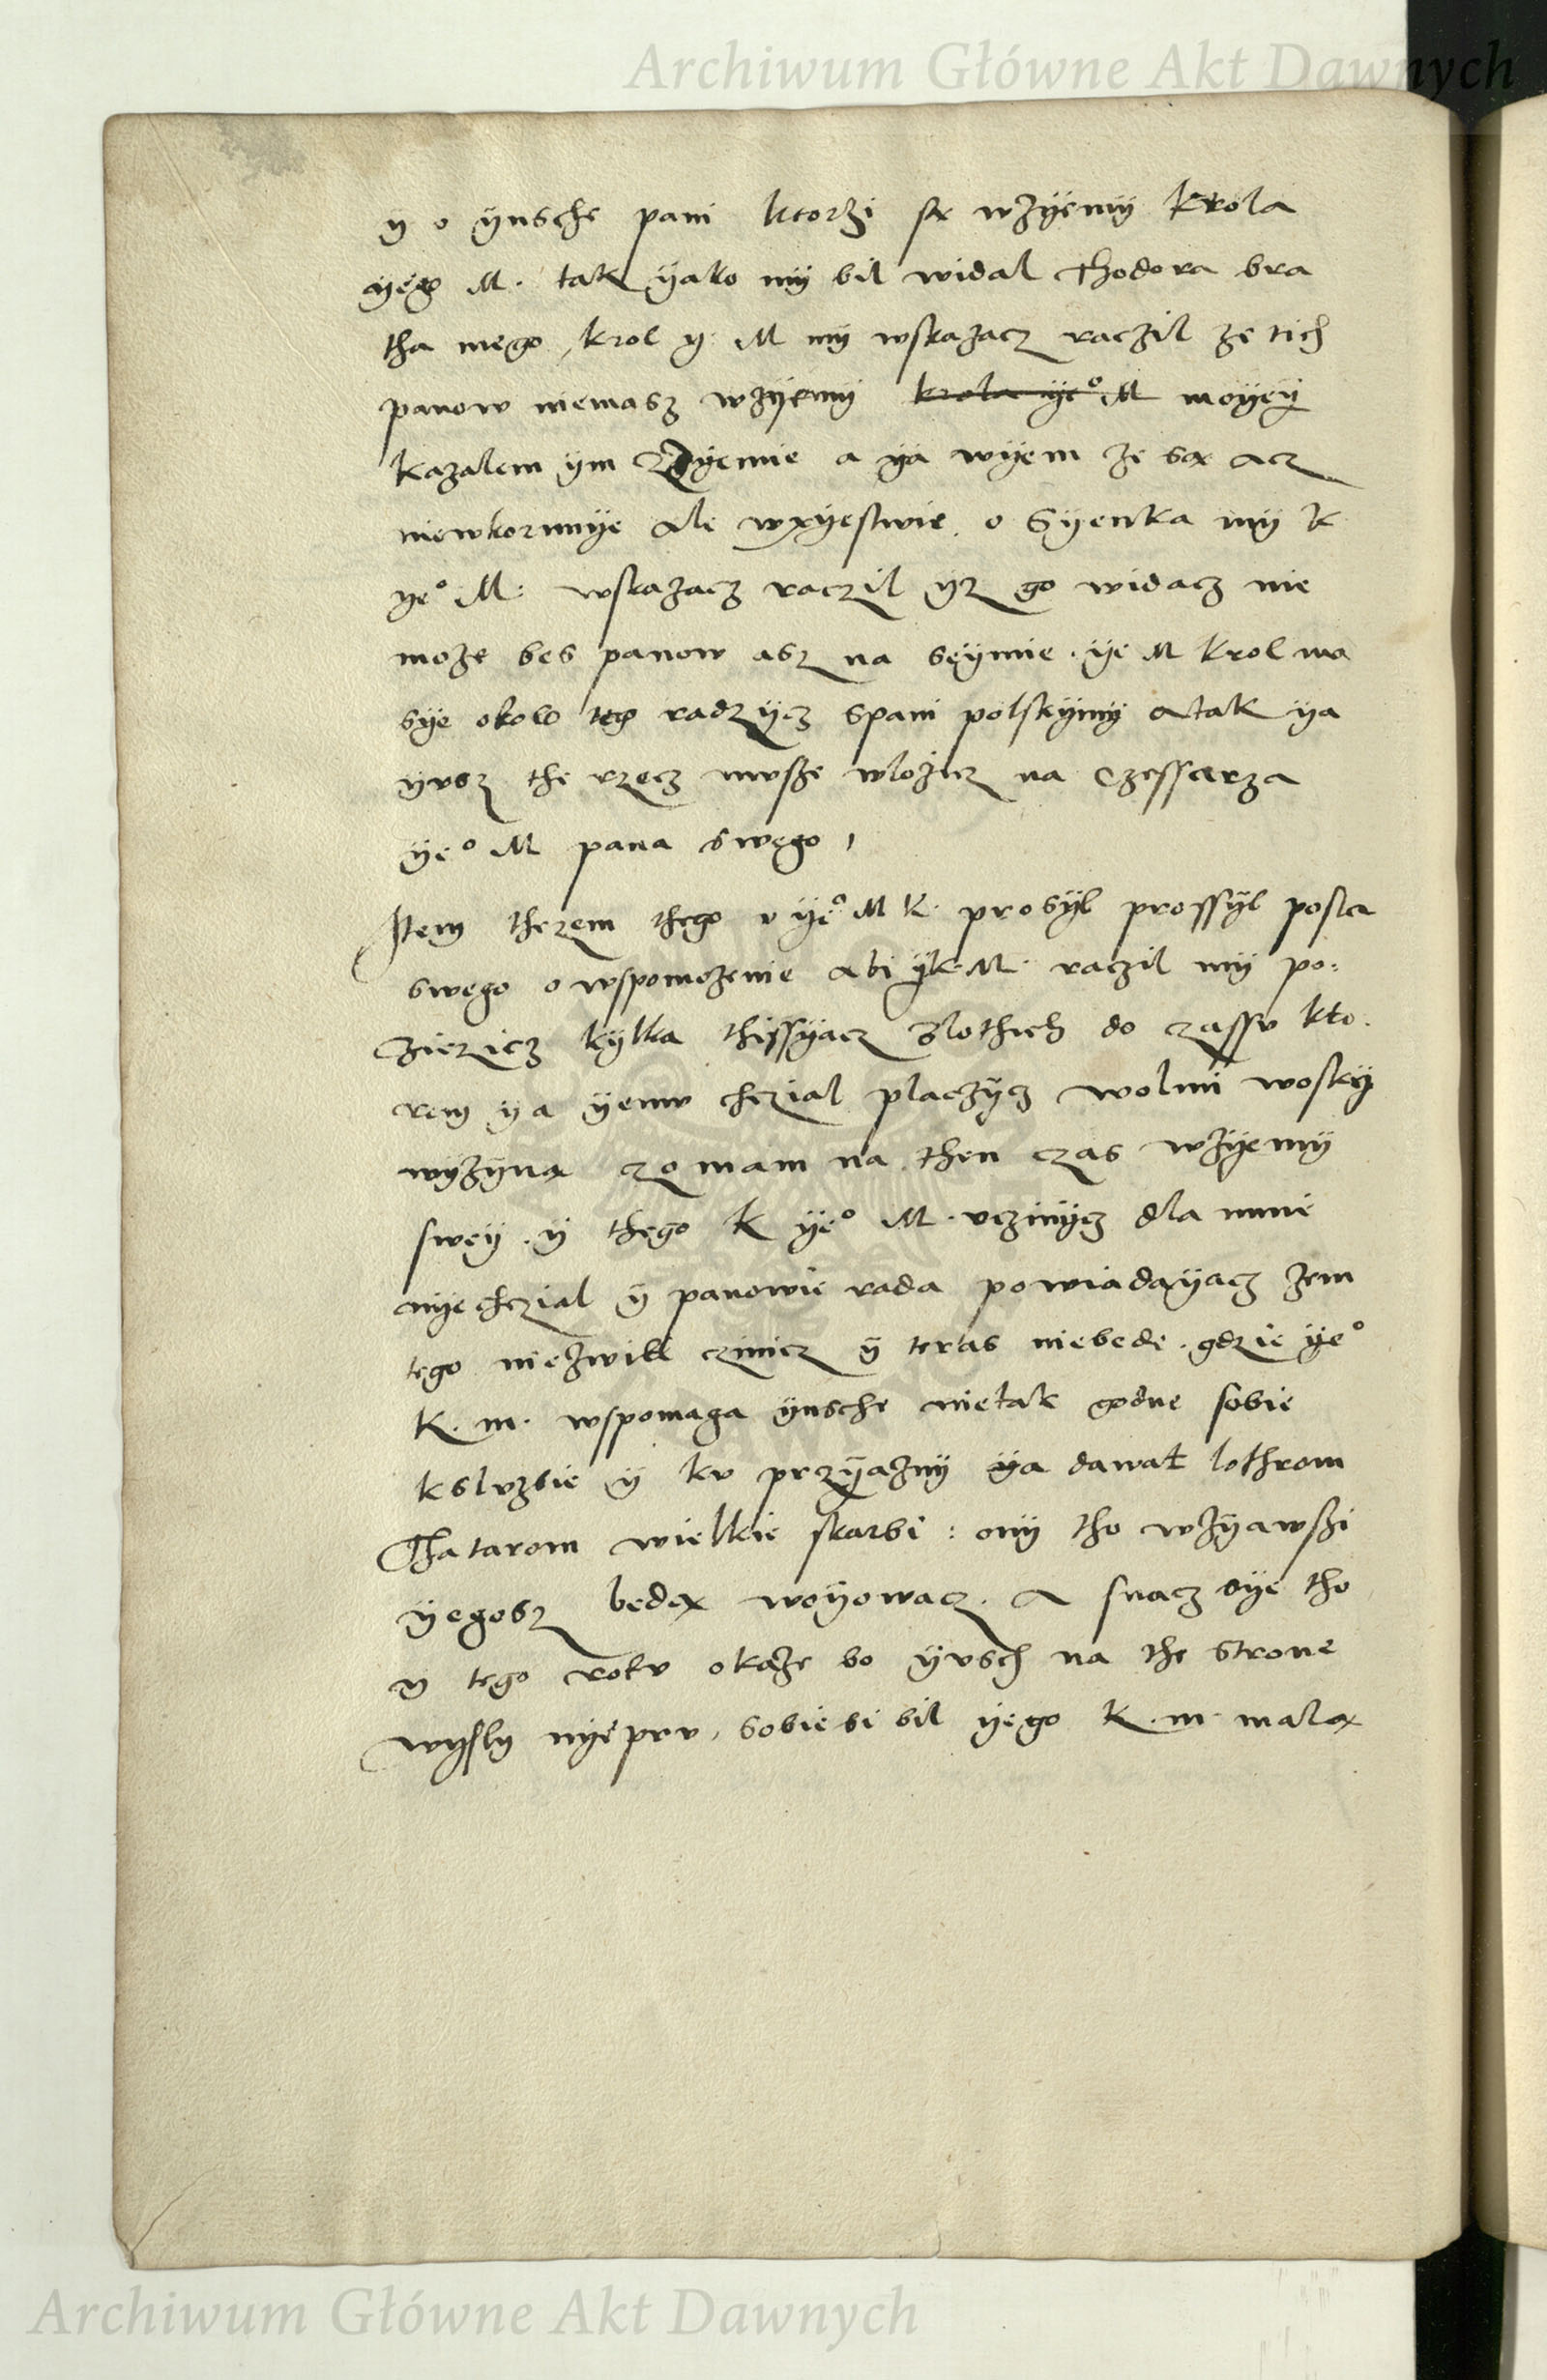 Archiwum Główne Akt Dawnych
y o ÿnsche pani ktorzi sx wzÿemÿ krola
ÿego M. tak ÿako mÿ bil widal Thodora bra
tha mego, krol y. M mÿ wskazacz raczil ze tich
panow niemasz wzÿemÿ krola ÿe° M moÿeÿ
kazalem ÿm ÿemie a ÿa wÿem ze sx acz
niewkorunÿe Ale wxÿestwie. o Syenka mÿ K
ÿe° M: wskazacz raczil ÿz go widacz nie
moze bes panow asz na seÿmie. ÿe M krol ma
sÿe okolo teg radzÿcz spani polskÿmÿ a tak ÿa
ÿusz the rzecz musze wlozicz na Czessarza
ÿe° M pana swego,
Item thezem thego v ÿe° M K. prosÿl prossÿl posla
swego o wspomozenie abi ÿ K. M. raczil mÿ po:
zieziczÿ kÿlka thissÿacz zlothich do czassu kto.
rem ÿa ÿemu chczial placzÿcz wolmi woskÿ
wÿzÿnx czo mam na then czas wzÿemÿ
sweÿ. ÿ thego K ÿe° M. vczinÿcz dla mnie
nÿechczial ÿ panowie rada powiadaÿacz zem
tego niezwikl czinicz ÿ teras niebede. gdzie ÿe°
K. m. wspomaga ÿnsche nietak godne sobie
kslvzbie ÿ kv przÿaznÿ ÿa dawat lothrom
Thatarom wielkie skarbi: onÿ tho wzÿawszi
ÿegosz bedx woÿowacz. A snacz sÿe tho
ÿ tego rokv okaze bo ÿusch na the strone
wÿslÿ nÿeprv, sobie bi bil ÿego K. m. malx
Archiwum Główne Akt Dawnych